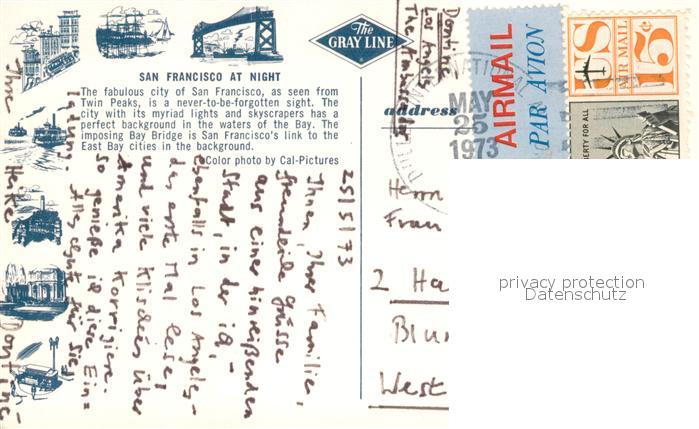 The
GRAY LINE
SAN FRANCISCO AT NIGHT
The fabulous city of San Francisco, as seen from
Twin Peaks, is a never-to-be-forgotten sight. The
city with its myriad lights and skyscrapers has a
perfect background in the waters of the Bay. The
imposing Bay Bridge is San Francisco's link to the
East Bay cities in the background.
Color photo by Cal-Pictures
address
The Ambassador
Los Angeles
MAY
25
1973
AIRMAIL
PAR AVION
US
AIR MAIL
15¢
LIBERTY FOR ALL
25/5/73
Ihnen, Ihrer Familie,
freundliche Grüsse
aus einer hinreißenden
Stadt, in der ich,-
ebenfalls in Los Angeles-
das erste Mal lese,
und viele Klischees über
Amerika korrigiere.
So genieße ich diese Ein=
Alles Gute für Sie!
Ihre Heike Doutiné-
Herrn
Frau
2 Ha
West
privacy protection
Datenschutz